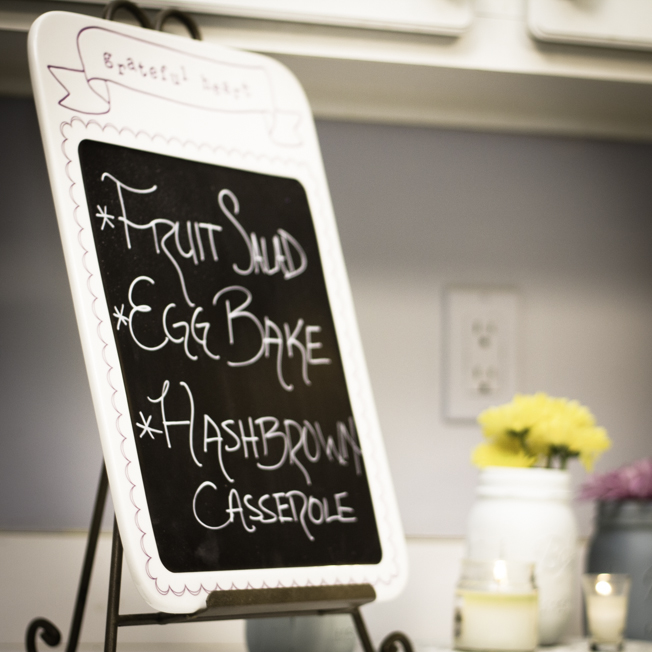 grateful heart
*FRUIT SALAD
*EGG BAKE
*HASHBROWN
CASSEROLE